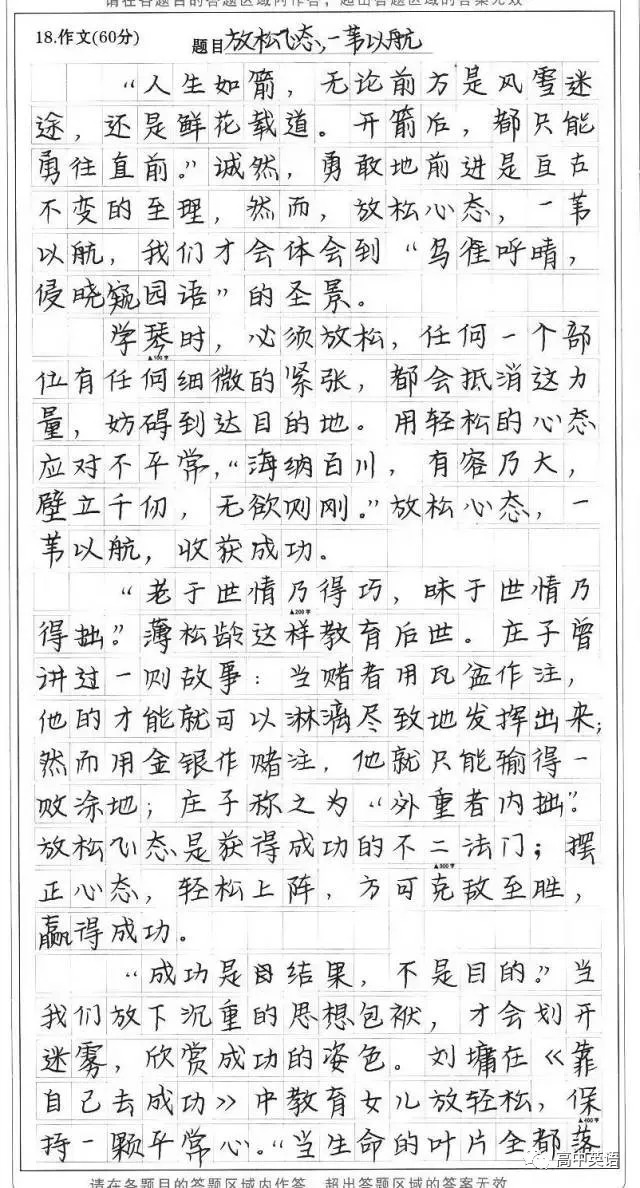 请在各题目的答题区域内作答，超出答题区域的答案无效
18.作文(60分) 题目放松心态，一苇以航
“人生如箭，无论前方是风雪迷
途，还是鲜花载道。开箭后，都只能
勇往直前。”诚然，勇敢地前进是亘古
不变的至理，然而，放松心态，一苇
以航，我们才会体会到“鸟雀呼晴，
侵晓窥园语”的圣景。
学琴时，必须放松，任何一个部
▲100字
位有任何细微的紧张，都会抵消这力
量，妨碍到达目的地。用轻松的心态
应对不平常，“海纳百川，有容乃大，
壁立千仞，无欲则刚。”放松心态，一
苇以航，收获成功。
“老于世情乃得巧，昧于世情乃
▲200字
得拙。”薄松龄这样教育后世。庄子曾
讲过一则故事：当赌者用瓦盆作注，
他的才能就可以淋漓尽致地发挥出来；
然而用金银作赌注，他就只能输得一
败涂地；庄子称之为“外重者内拙”。
放松心态是获得成功的不二法门；摆
▲300字
正心态，轻松上阵，方可克敌至胜，
赢得成功。
“成功是结果，不是目的。”当
我们放下沉重的思想包袱，才会划开
迷雾，欣赏成功的姿色。刘墉在《靠
自己去成功》中教育女儿放轻松，保
▲400字
持一颗平常心。“当生命的叶片全都落
高中英语
请在各题目的答题区域内作答，超出答题区域的答案无效